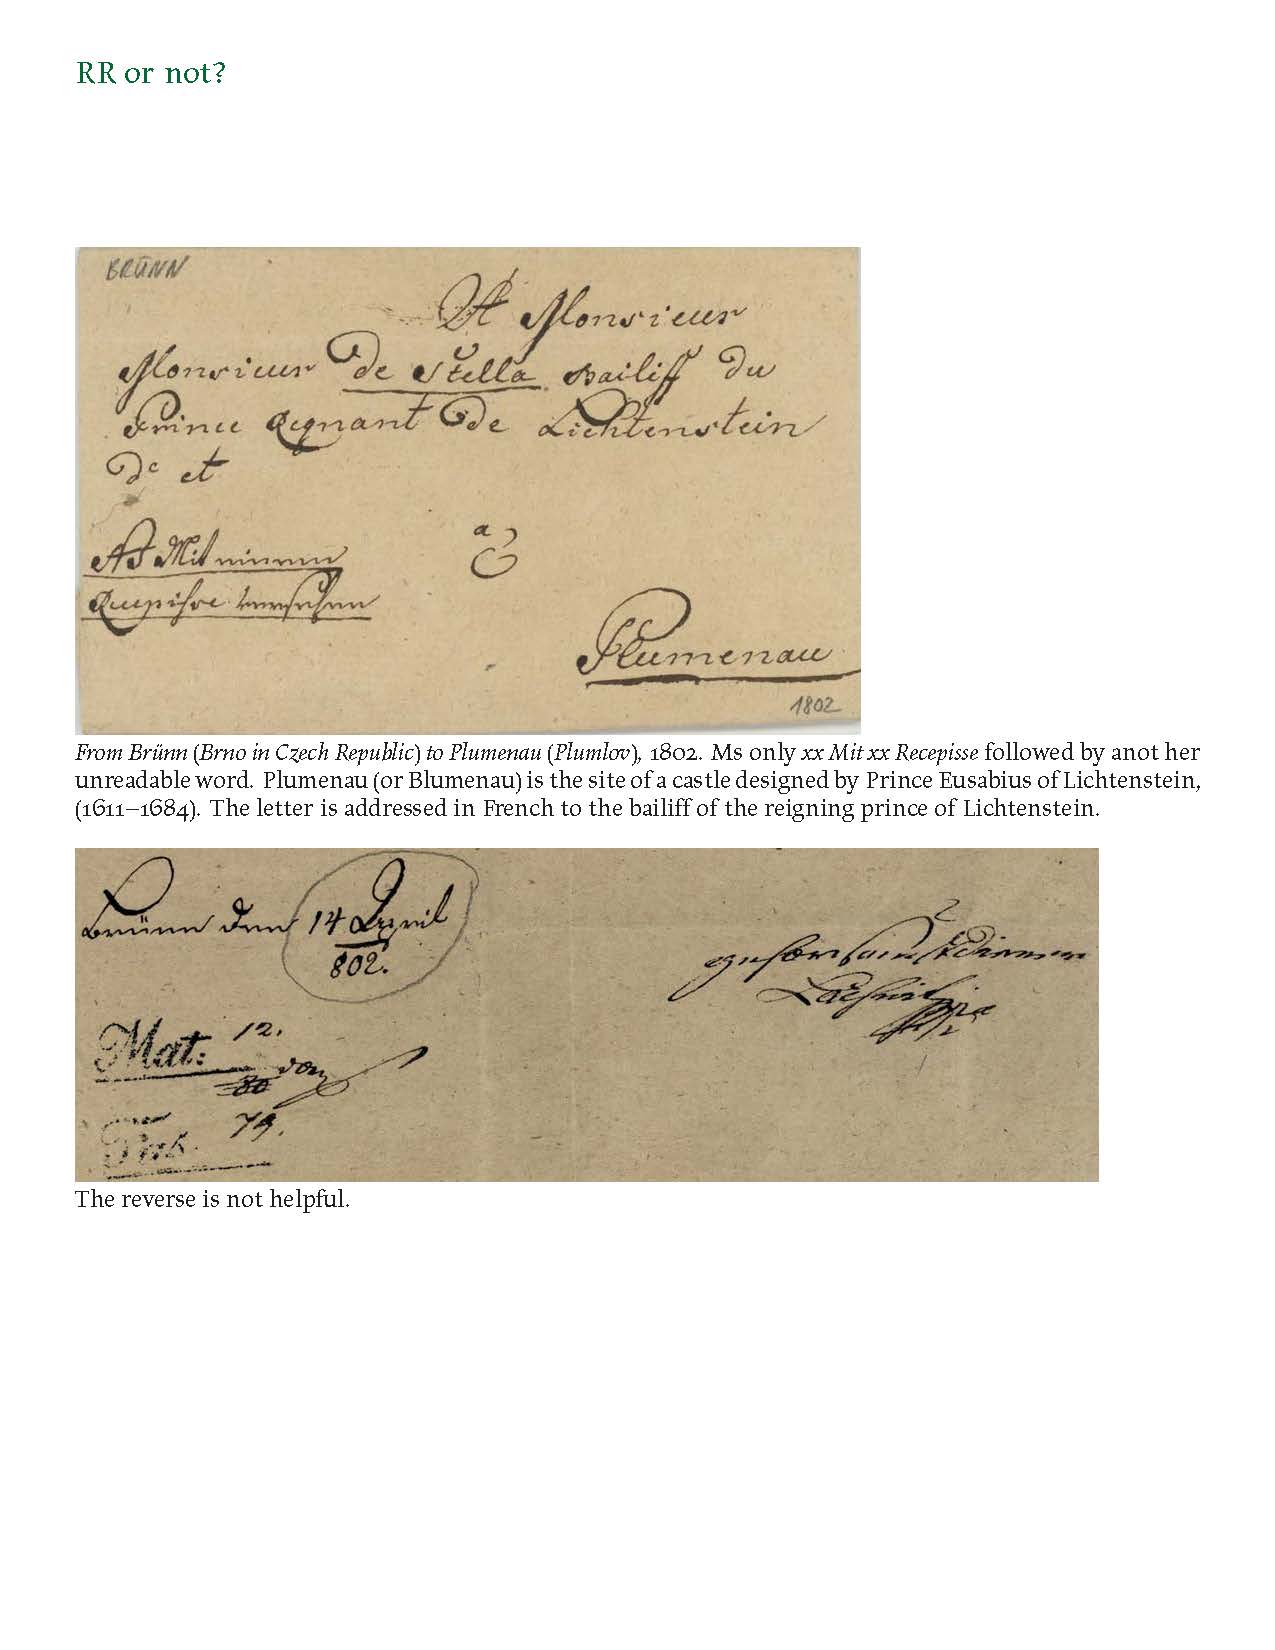 RR or not?
BRÜNN
A Monsieur
Monsieur de Stella Bailiff du
Prince Regnant de Lichtenstein
et
Mit einem
Recepisse versehen
a
Plumenau
1802
From Brünn (Brno in Czech Republic) to Plumenau (Plumlov), 1802. Ms only xx Mit xx Recepisse followed by anot her
unreadable word. Plumenau (or Blumenau) is the site of a castle designed by Prince Eusabius of Lichtenstein,
(1611–1684). The letter is addressed in French to the bailiff of the reigning prince of Lichtenstein.
Brünn den 14 April
802.
gehorsamster Diener
Mat: 12.
80
The reverse is not helpful.